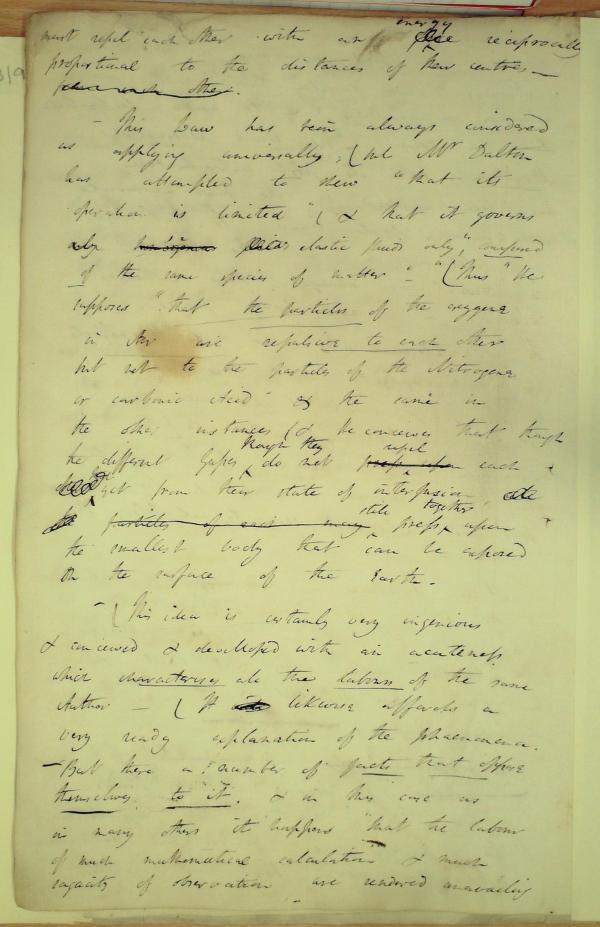 must repel each other with an energy reciprocally
proportional to the distances of their centres
from each other.
- This Law has been always considered
as applying universally, (but Mr Dalton
has attempted to shew "that its
operation is limited" (& that it governs
only elastic fluids only", composed
of the same species of matter" - "(Thus" He
supposes "that the particles of the oxygene
in Air are repulsive to each other
but not to the particles of the Nitrogene
or carbonic Acid" & the same in
the other instances (& he conceives that though
the different Gases though they do not repel each
yet from their state of interfusion
the particles of each may still press together upon
the smallest body that can be exposed
on the surface of the Earth.
- (This idea is certainly very ingenious
& conceived & developed with an acuteness
which characterises all the labours of the same
Author - (It likewise affords a
very ready explanation of the phaenomena.
- But there a number of facts that oppose
themselves to "it". & in this case as
in many others it happens "that the labour
of much mathematical calculation" & much
sagacity of observation are rendered unavailing